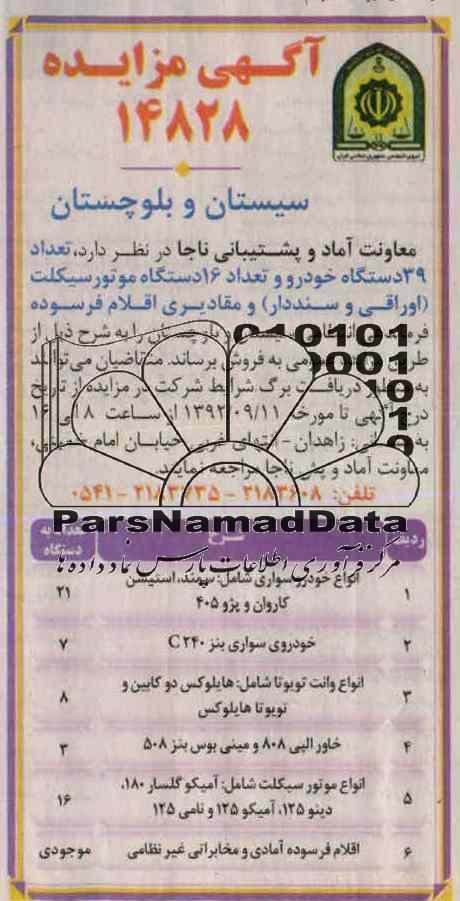 آگهی مزایده
۱۴۸۲۸
سیستان و بلوچستان
معاونت آماد و پشتیبانی ناجا در نظر دارد، تعداد
۳۹دستگاه خودرو و تعداد ۱۶دستگاه موتورسیکلت
(اوراقی و سنددار) و مقادیری اقلام فرسوده
را به شرح ذیل از
به فروش برساند. متقاضیان می‌توانند
دریافت برگ شرایط شرکت در مزایده از تاریخ
آگهی تا مورخه ۱۳۹۲/۰۹/۱۱ از ساعت ۸ الی ۱۶
زاهدان - انتهای غربی خیابان امام خمینی،
معاونت آماد و پش ناجا مراجعه نمایند.
تلفن: ۲۱۸۳۶۰۸ - ۲۱۸۳۷۳۵ - ۰۵۴۱
010101
0001
10
1
0
ParsNamadData
مرکز فرآوری اطلاعات پارس نماد داده ها
ردیف شرح تعداد به دستگاه
۱ انواع خودرو سواری شامل: سمند، استیشن ۲۱
کاروان و پژو ۴۰۵
۲ خودروی سواری بنز C۲۴۰ ۷
۳ انواع وانت تویوتا شامل: هایلوکس دو کابین و ۸
تویوتا هایلوکس
۴ خاور الپی ۸۰۸ و مینی بوس بنز ۵۰۸ ۳
۵ انواع موتور سیکلت شامل: آمیکو گلسار ۱۸۰، ۱۶
دینو ۱۲۵، آمیکو ۱۲۵ و نامی ۱۲۵
۶ اقلام فرسوده آمادی و مخابراتی غیر نظامی موجودی